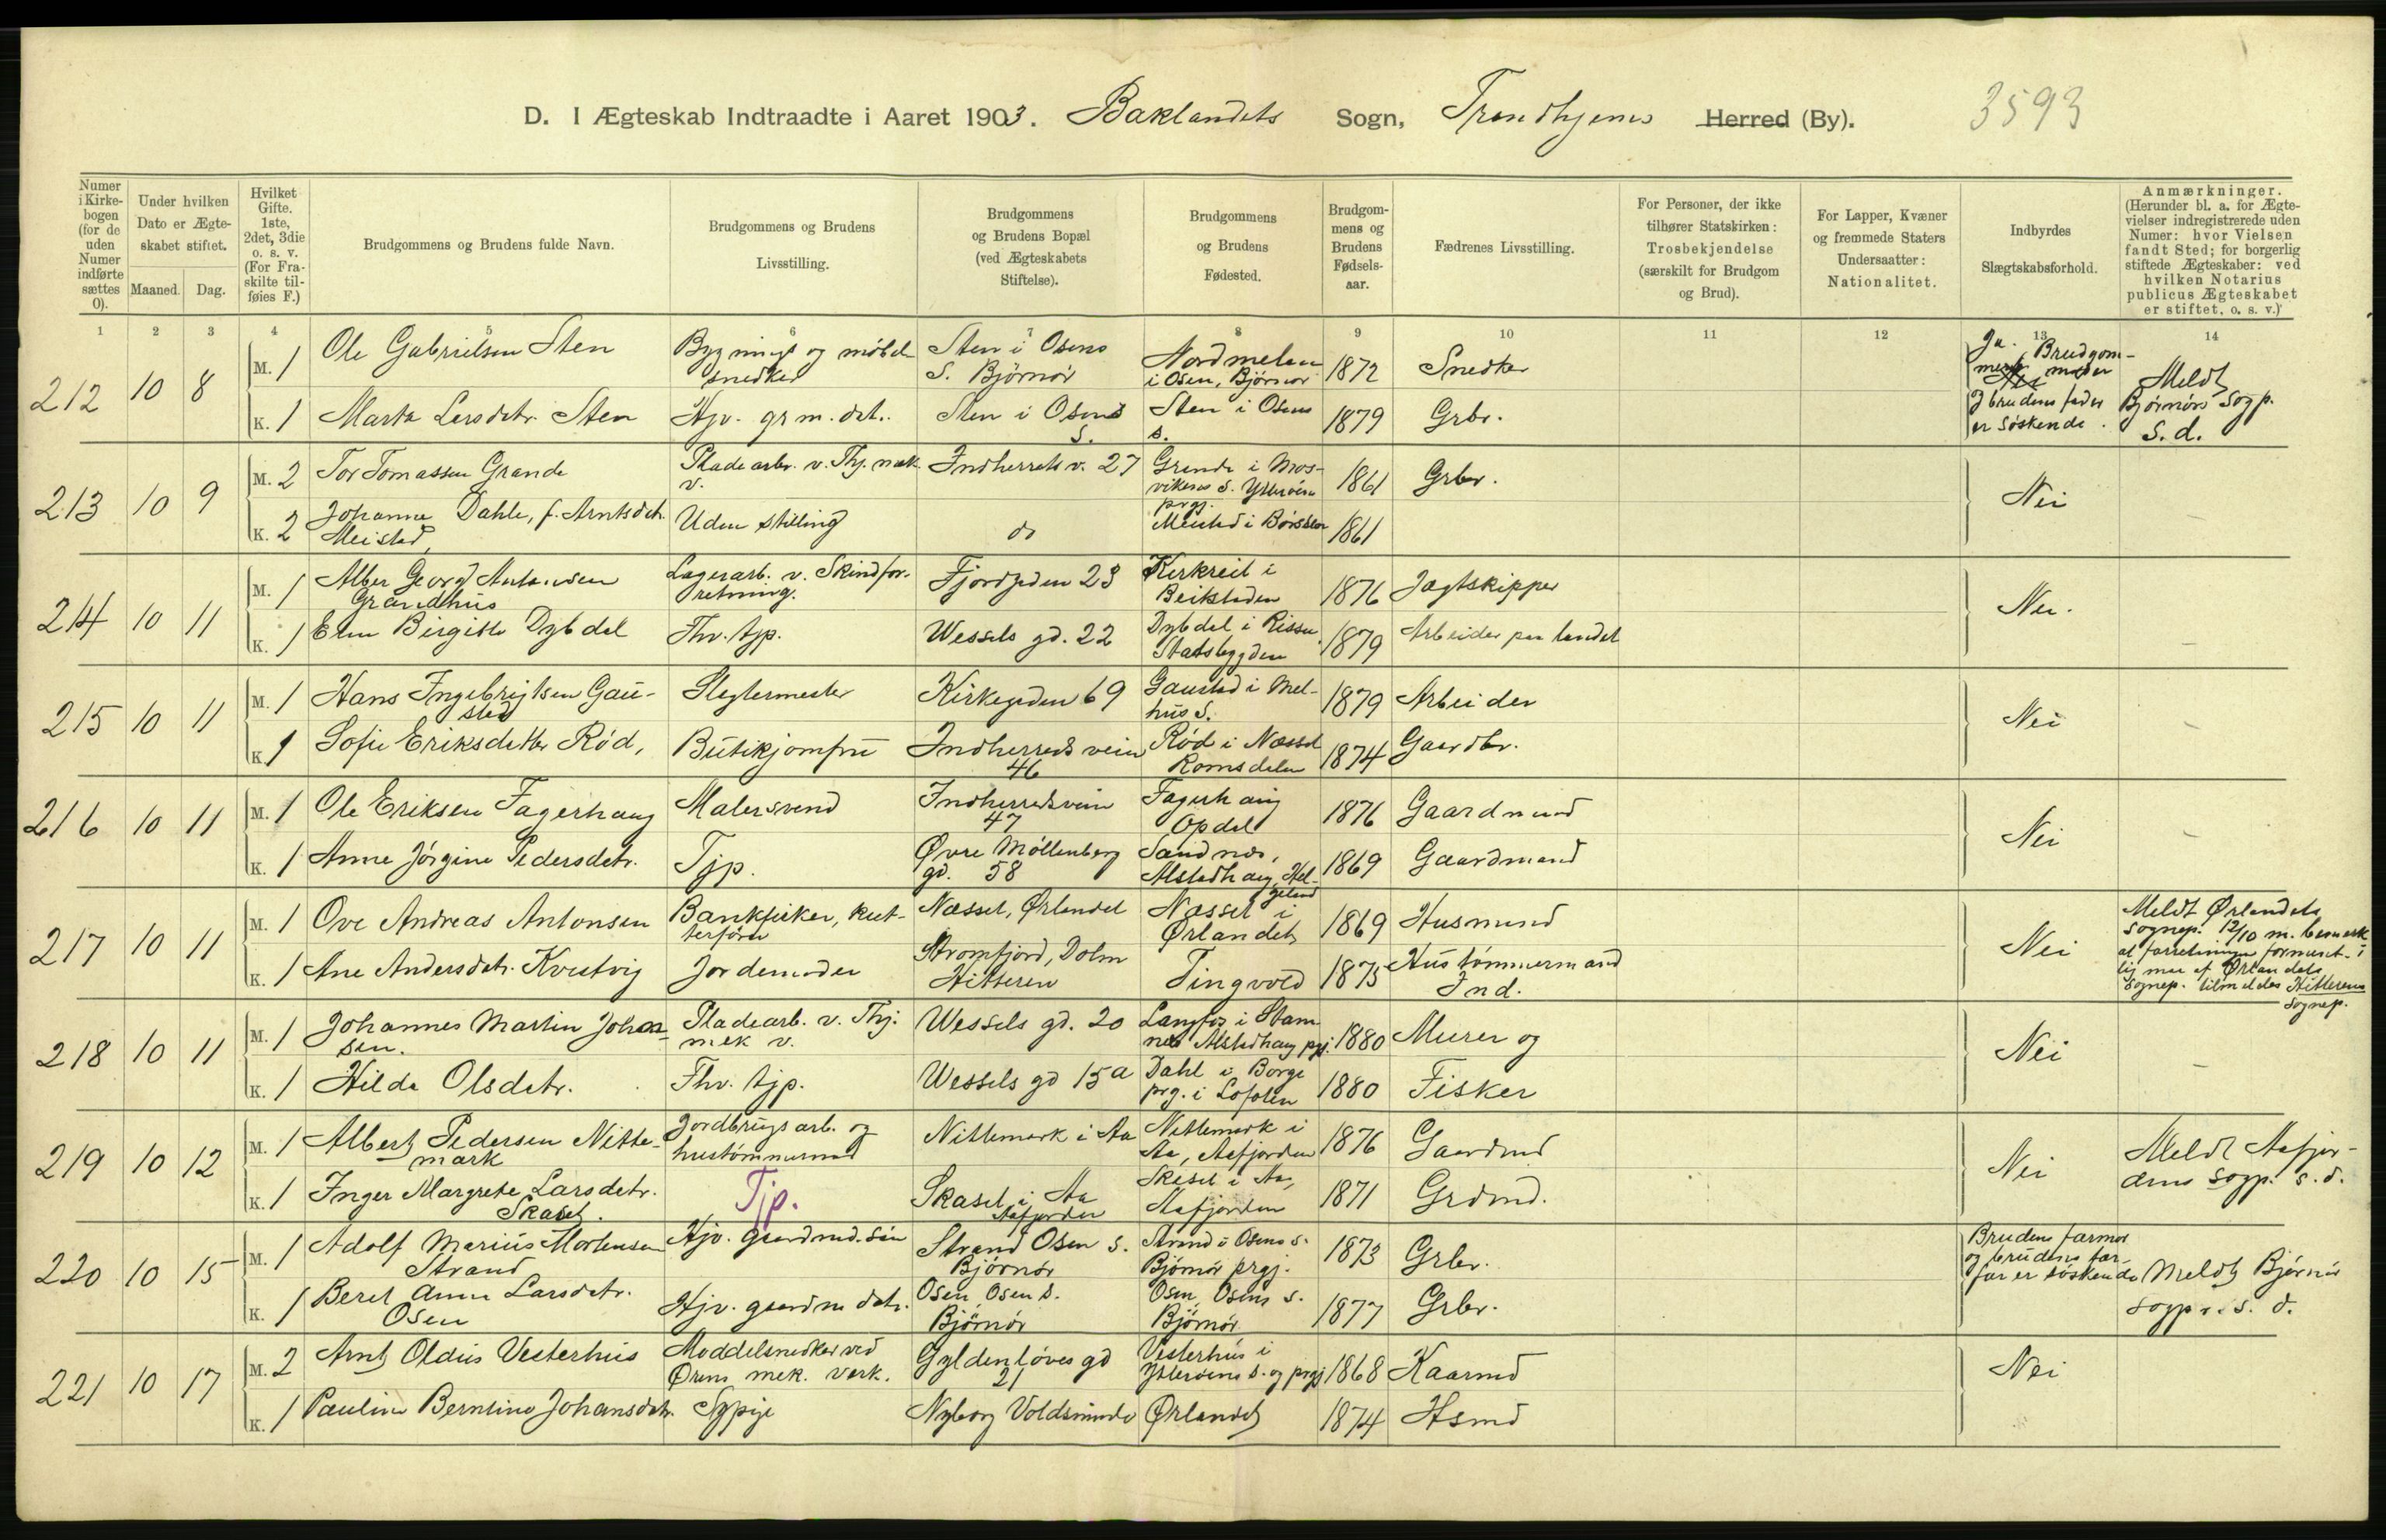 D. I Ægteskab Indtraadte i Aaret 1903. Baklandets Sogn, Trondhjems Herred (By). 3593
Numer i Kirkebogen (for de uden Numer indførte sættes 0).
Under hvilken Dato er Ægteskabet stiftet.
Maaned. Dag.
Hvilket Gifte. 1ste, 2det, 3die o. s. v. (For Fraskilte tilføies F.)
Brudgommens og Brudens fulde Navn.
Brudgommens og Brudens Livsstilling.
Brudgommens og Brudens Bopæl (ved Ægteskabets Stiftelse).
Brudgommens og Brudens Fødested.
Brudgommens og Brudens Fødselsaar.
Fædrenes Livsstilling.
For Personer, der ikke tilhører Statskirken: Trosbekjendelse (særskilt for Brudgom og Brud).
For Lapper, Kvæner og fremmede Staters Undersaatter: Nationalitet.
Indbyrdes Slægtskabsforhold.
Anmærkninger. (Herunder bl. a. for Ægtevielser indregistrerede uden Numer: hvor Vielsen fandt Sted; for borgerlig stiftede Ægteskaber: ved hvilken Notarius publicus Ægteskabet er stiftet, o. s. v.)
1 2 3 4 5 6 7 8 9 10 11 12 13 14
212 10 8
M. 1 Ole Gabrielsen Sten Bygnings og møbelsnedker Sten i Osens S. Bjørnør Nordmelan i Osen, Bjørnør 1872 Snedker
K. 1 Marta Larsdatr. Sten Hjv. grm. dat. Sten i Osens S. Sten i Osens s. 1879 Grbr.
Ja. Brudgommens moder
og brudens fader er søskende.
Meldt Bjørnørs Sogp. s. d.
213 10 9
M. 2 Tor Tomassen Grande Pladearbr. v. Thj. mek. v. Indherreds v. 27 Grande i Mosvikens S. Ytterøens prgj. 1861 Grbr.
K. 2 Johanna Dahle, f. Arntsdtr. Meistad, Uden stilling do Meistad i Børseskn 1861
Nei
214 10 11
M. 1 Albert Georg Antonsen Grandhus Lagerarb. v. Skindforretning. Fjordgaden 23 Kirkreit i Beitstaden 1876 Jagtskipper
K. 1 Elen Birgitte Dybdal Fhv. tjp. Wessels gd. 22 Dybdal i Rissa Stadsbygden 1879 Arbeider paa landet
Nei.
215 10 11
M. 1 Hans Ingebrigtsen Gaustad Slagtermester Kirkegaden 69 Gaustad i Melhus S. 1879 Arbeider
K. 1 Sofie Eriksdatter Rød, Butikjomfru Indherreds veien 46 Rød i Næsset Romsdalen 1874 Gaardbr.
Nei
216 10 11
M. 1 Ole Eriksen Fagerhaug Malersvend Indherredsveien 47 Fagerhaug Opdal 1876 Gaardmand
K. 1 Anne Jørgine Pedersdatr. Tjp. Øvre Møllenberg gd. 58 Sandnes, Alstadhaug, Helgeland 1869 Gaardmand
Nei
217 10 11
M. 1 Ove Andreas Antonsen Bankfisker, kutterfører Næsset, Ørlandet Næsset i Ørlandet 1869 Husmand
K. 1 Ane Andersdatr. Kvistvig Jordemoder Strømfjord, Dolm Hitteren Tingvold 1875 Hustømmermand Ind.
Nei
Meldt Ørlandets Sognep. 12/10 m. bemerk. at forretningen formentl. i lig maa af Ørlandets Sognep. tilmeldes Hitterens Sognep.
218 10 11
M. 1 Johannes Martin Johansen. Pladearb. v. Thj. mek v. Wessels gd. 20 Langfos i Stamnes Alstadhaug pgj. 1880 Murer og
K. 1 Hilda Olsdatr. Fhv. tjp. Wessels gd 15a Dahl i Borge prg. i Lofoten 1880 Fisker
Nei
219 10 12
M. 1 Albert Pedersen Nittemark Jordbrugsarb. og hustømmermand Nittemark i Aa Nittemark i Aa, Aafjorden 1876 Gaardmd
K. 1 Inger Margrete Larsdatr. Skaset. Tjp. Skaset i Aa Aafjorden Skaset i Aa, Aafjorden 1871 Grdmd.
Nei
Meldt Aafjordens Sogp. s. d.
220 10 15
M. 1 Adolf Marius Mortensen Strand Hjv. gaardmd. søn Strand Osen s. Bjørnør Strand i Osens s. Bjørnør prgj. 1873 Grbr.
K. 1 Beret Anna Larsdatr. Osen Hjv. gaardm datr. Osen Osen s. Bjørnør Osen Osens s. Bjørnør 1877 Grbr.
Brudens farmor og brudens farfar er søskende
Meldt Bjørnør sogp. s. d.
221 10 17
M. 2 Arnt Oldus Vesterhus Moddelsnedker ved Ørens mek. Verk. Gyldenløves gd 21 Vesterhus i Ytterøens s. og prgj 1868 Kaarmd
K. 1 Pauline Berntine Johansdatr. Sypige Nyborg Voldsminde Ørlandet 1874 Hsmd
Nei